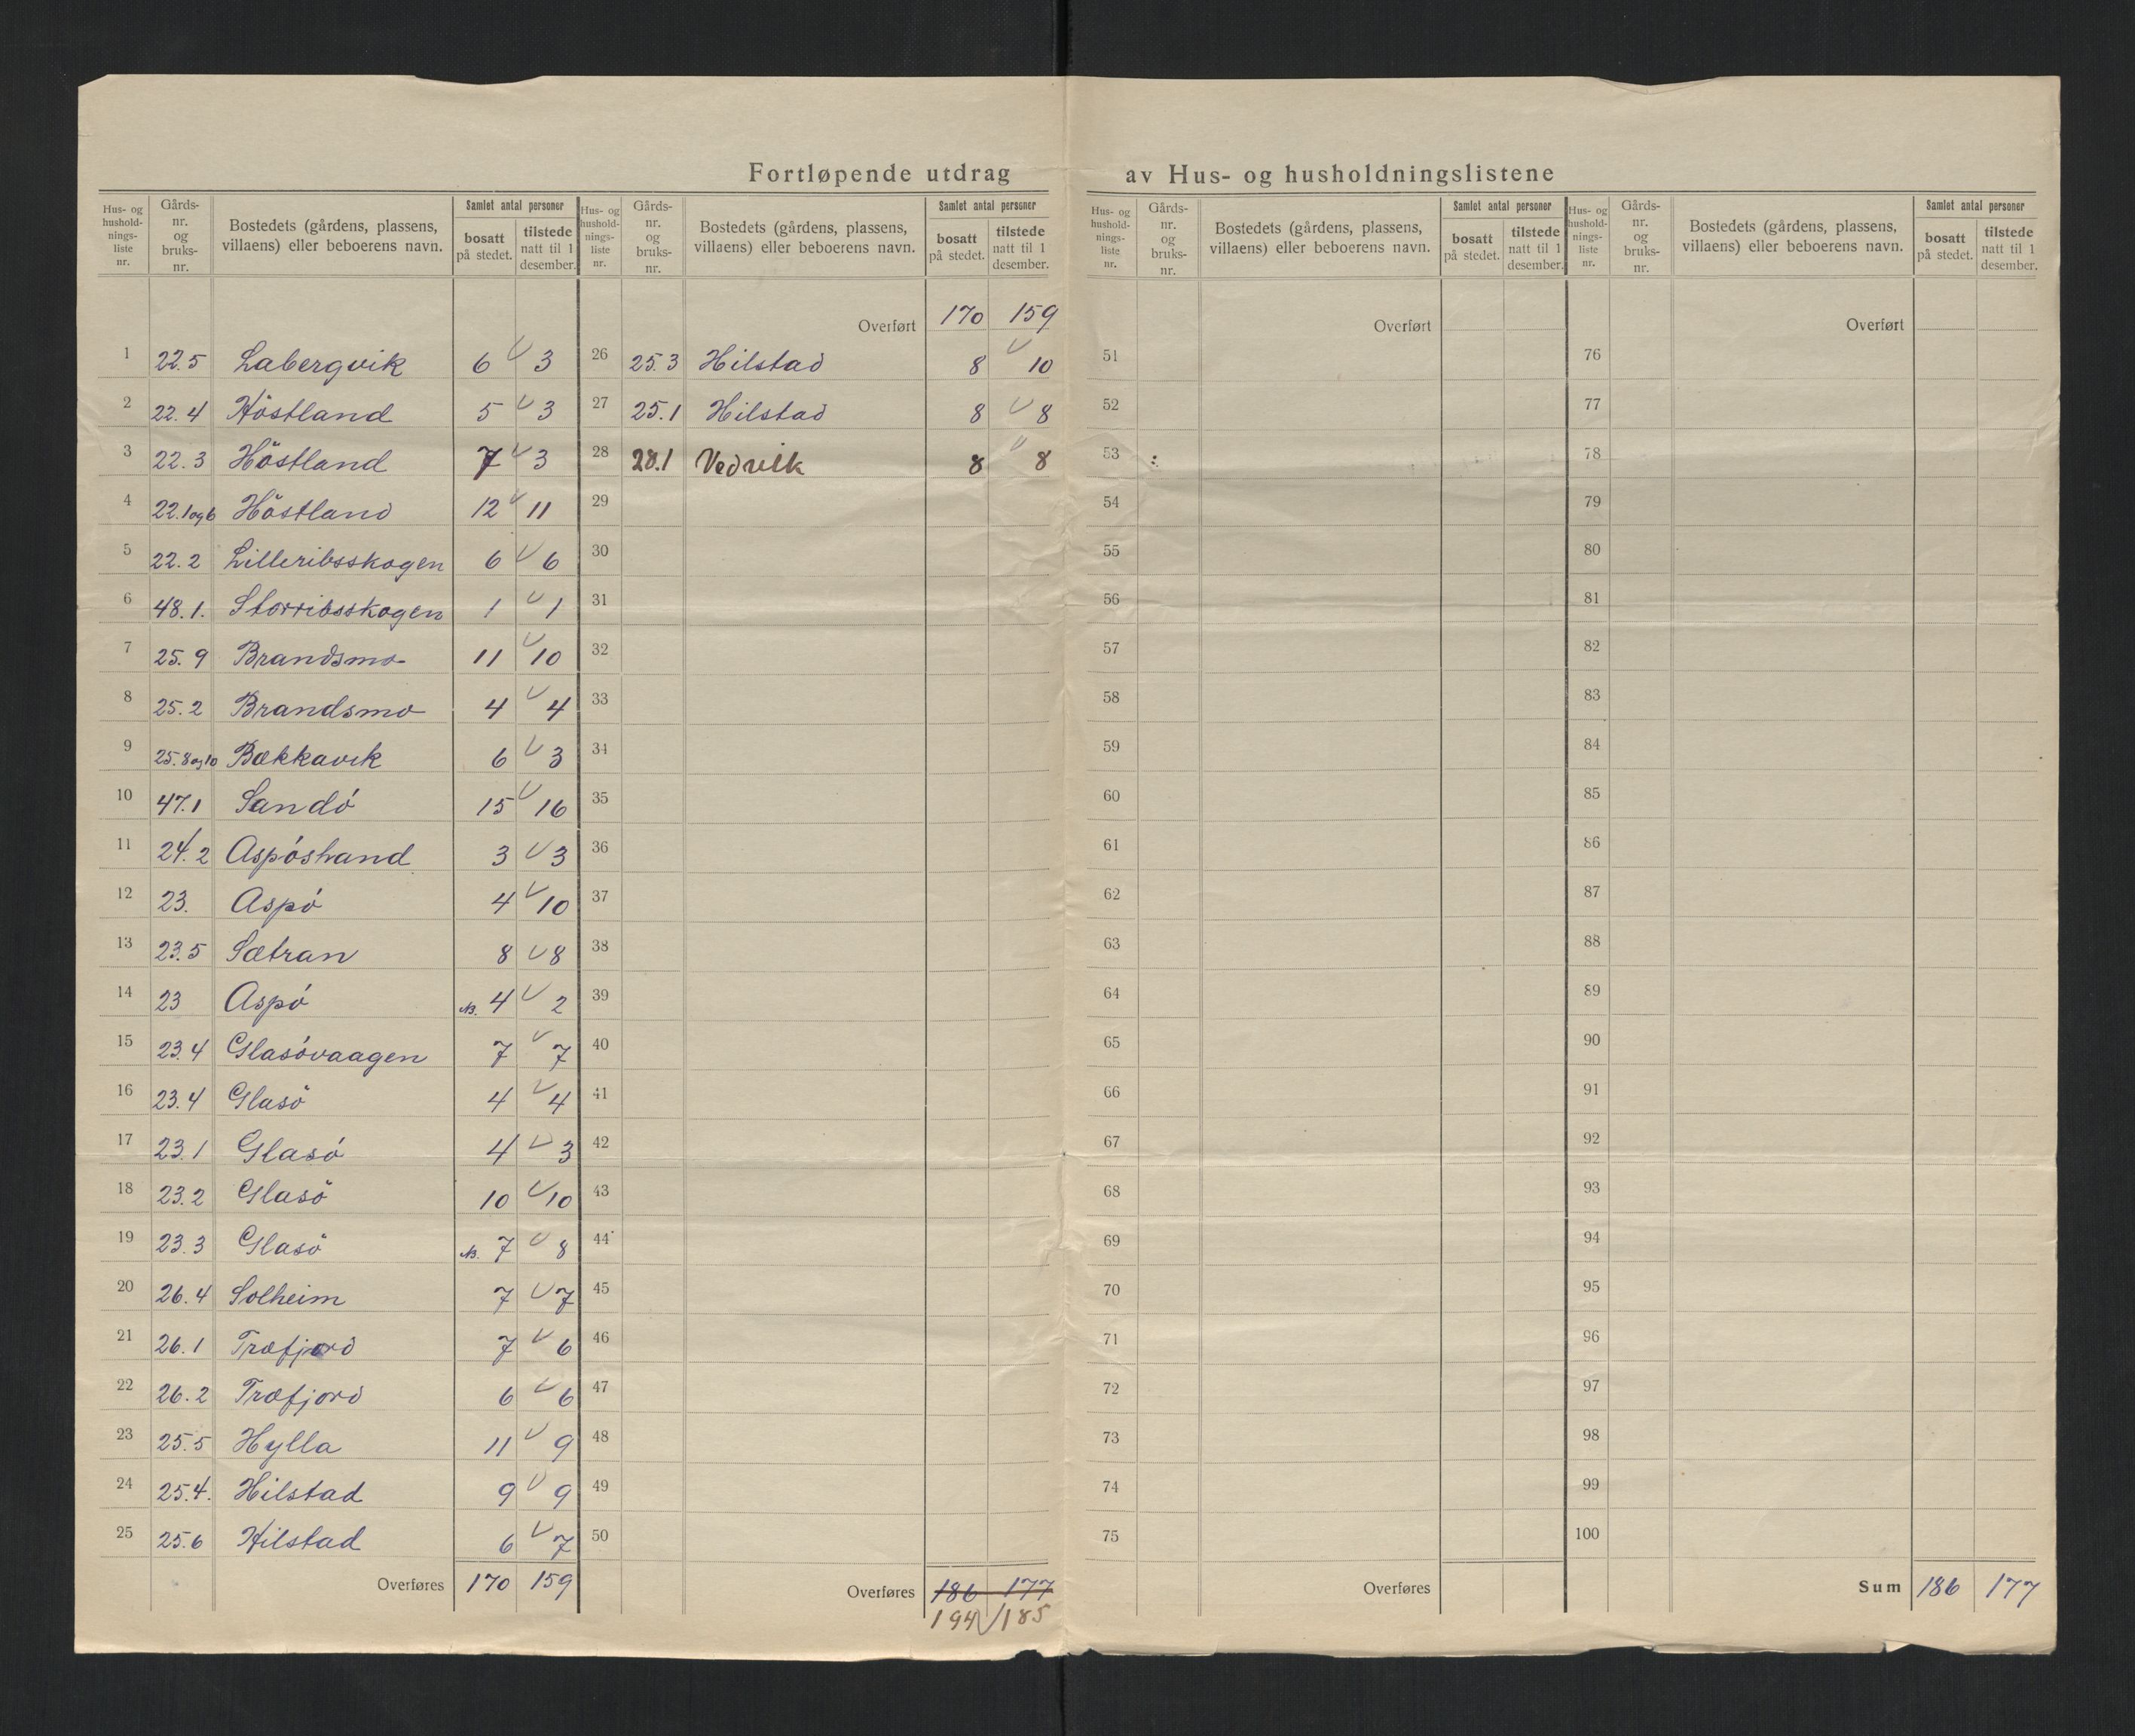 Fortløpende utdrag av Hus- og husholdningslistene
Hus- og hushold-nings-liste nr. | Gårds-nr. og bruks-nr. | Bostedets (gårdens, plassens, villaens) eller beboerens navn. | Samlet antal personer | bosatt på stedet. | tilstede natt til 1 desember.
1 22.5 Labergvik 6 3
2 22.4 Höstland 5 3
3 22.3 Höstland 7 3
4 22.1og6 Höstland 12 11
5 22.2 Lilleribsskogen 6 6
6 48.1. Storribsskogen 1 1
7 25.9 Brandsmo 11 10
8 25.2 Brandsmo 4 4
9 25.8og10 Bækkavik 6 3
10 47.1 Sandö 15 16
11 24.2 Aspöstrand 3 3
12 23. Aspö 4 10
13 23.5 Sætran 8 8
14 23 Aspö N3. 4 2
15 23.4 Glasövaagen 7 7
16 23.4 Glasö 4 4
17 23.1 Glasö 4 3
18 23.2 Glasö 10 10
19 23.3 Glasö N3. 7 8
20 26.4 Solheim 7 7
21 26.1 Træfjord 7 6
22 26.2 Træfjord 6 6
23 25.5 Hylla 11 9
24 25.4. Hilstad 9 9
25 25.6 Hilstad 6 7
Overføres 170 159
Hus- og hushold-nings-liste nr. | Gårds-nr. og bruks-nr. | Bostedets (gårdens, plassens, villaens) eller beboerens navn. | Samlet antal personer | bosatt på stedet. | tilstede natt til 1 desember.
Overført 170 159
26 25.3 Hilstad 8 10
27 25.1 Hilstad 8 8
28 28.1 Vedvik 8 8
29
30
31
32
33
34
35
36
37
38
39
40
41
42
43
44
45
46
47
48
49
50
Overføres 186 177
194 185
Hus- og hushold-nings-liste nr. | Gårds-nr. og bruks-nr. | Bostedets (gårdens, plassens, villaens) eller beboerens navn. | Samlet antal personer | bosatt på stedet. | tilstede natt til 1 desember.
Overført
51
52
53
54
55
56
57
58
59
60
61
62
63
64
65
66
67
68
69
70
71
72
73
74
75
Overføres
Hus- og hushold-nings-liste nr. | Gårds-nr. og bruks-nr. | Bostedets (gårdens, plassens, villaens) eller beboerens navn. | Samlet antal personer | bosatt på stedet. | tilstede natt til 1 desember.
Overført
76
77
78
79
80
81
82
83
84
85
86
87
88
89
90
91
92
93
94
95
96
97
98
99
100
Sum 186 177